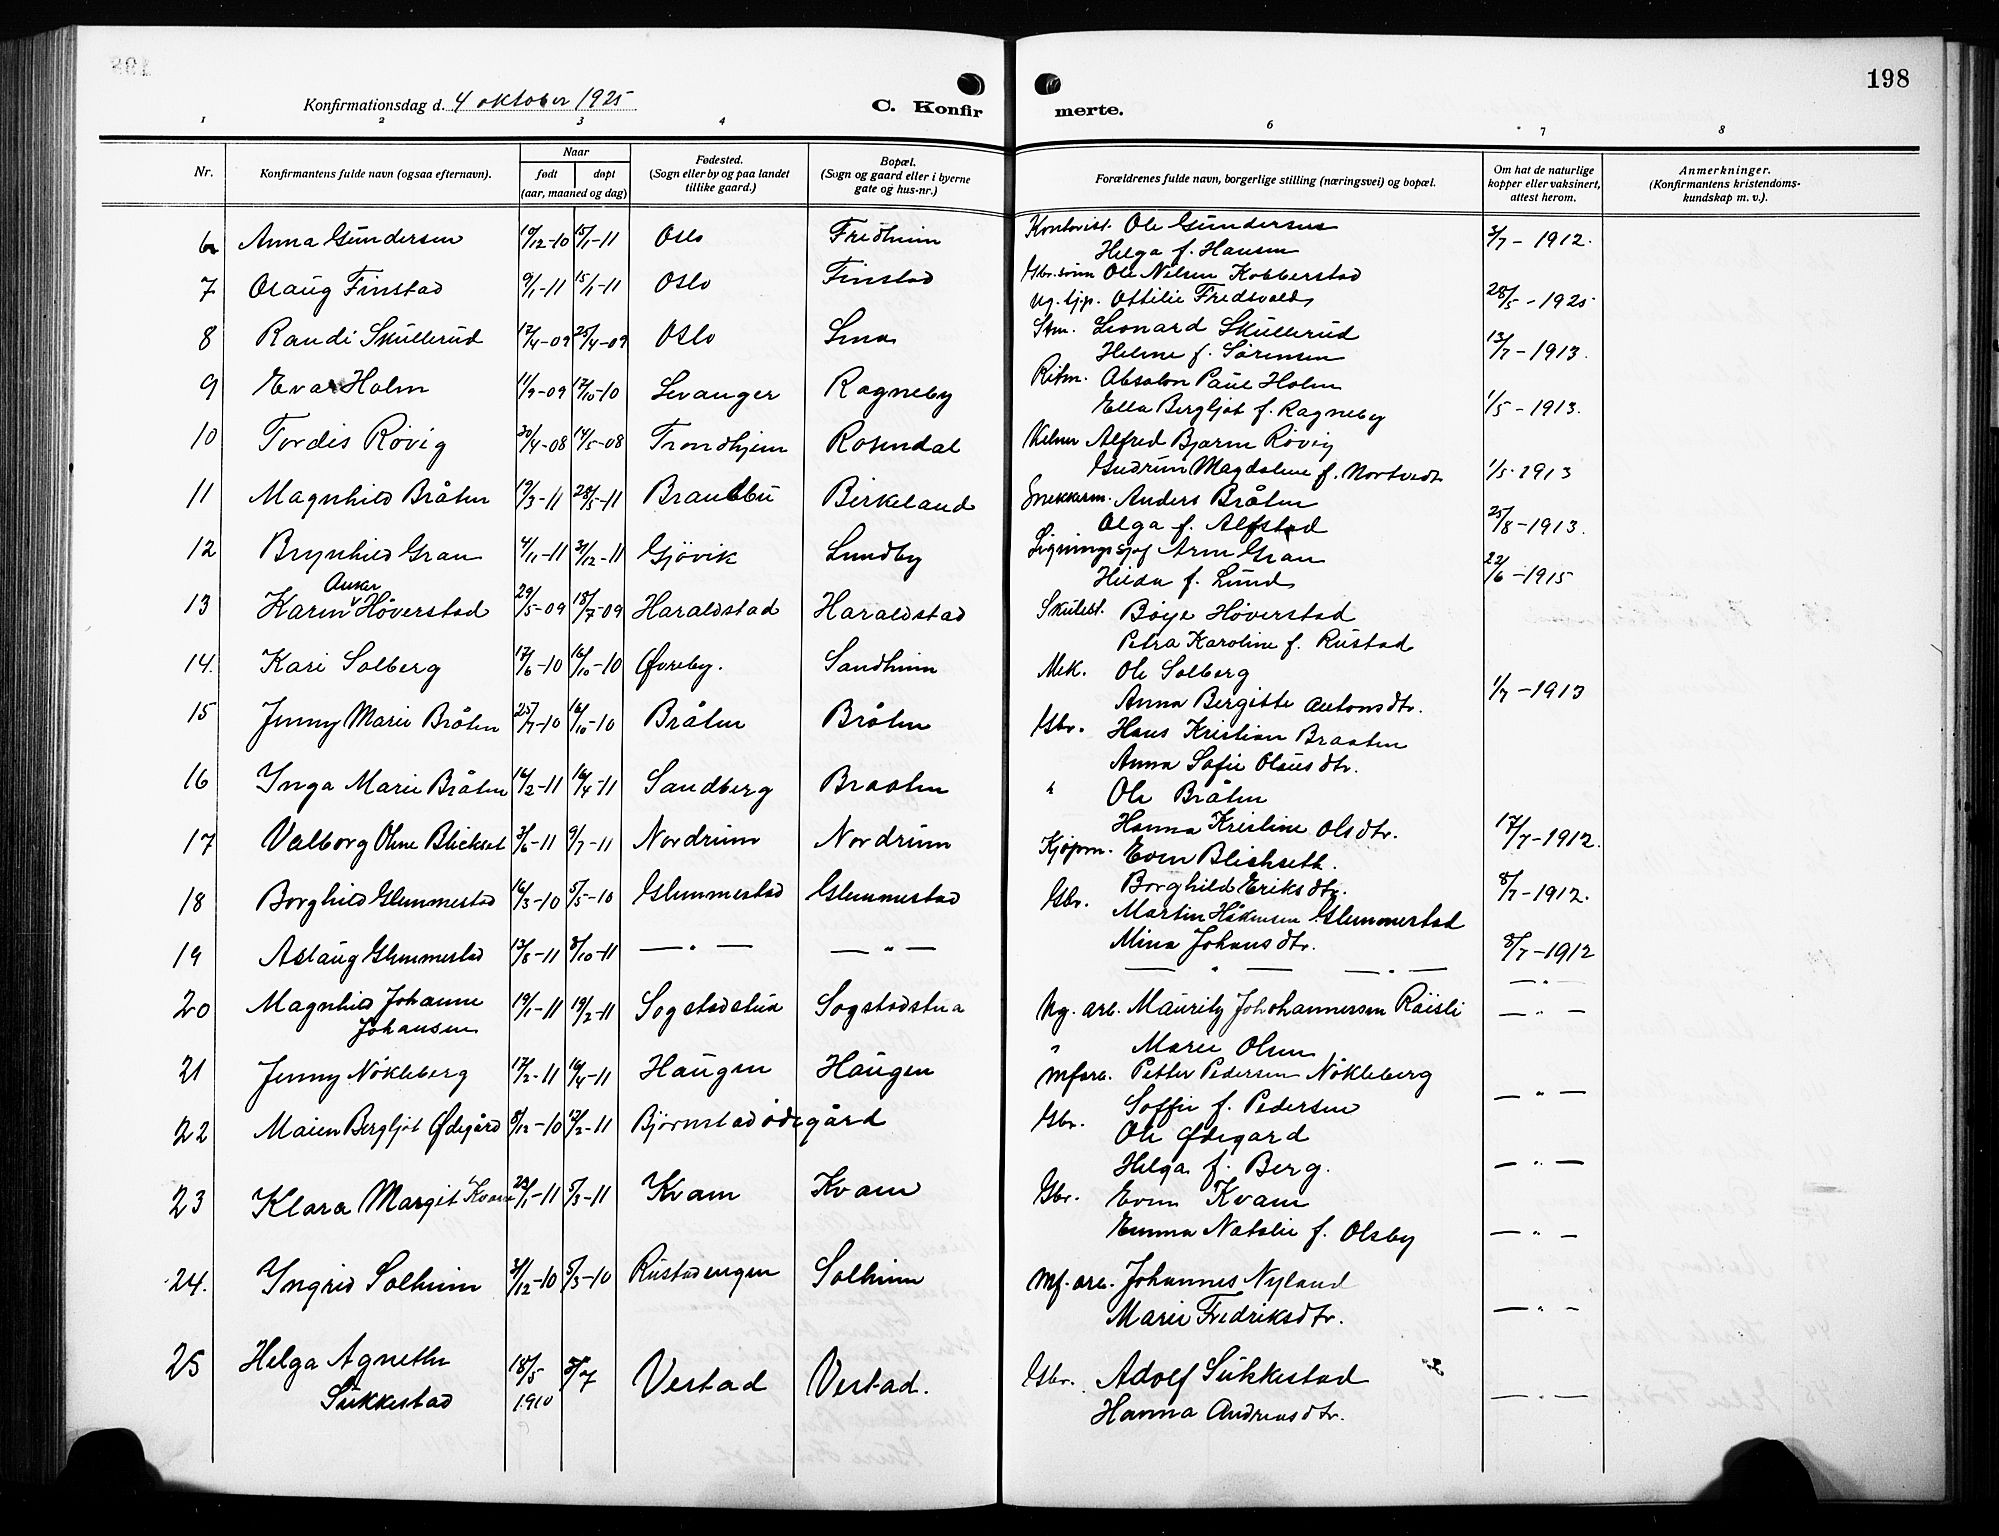 198
Konfirmationsdag d. 4 oktober 1925
C. Konfirmerte.
1 2 3 4 6 7 8
Nr.
Konfirmantens fulde navn (ogsaa efternavn).
Naar
født døpt
(aar, maaned og dag)
Fødested.
(Sogn eller by og paa landet
tillike gaard.)
Bopæl.
(Sogn og gaard eller i byerne
gate og hus-nr.)
Forældrenes fulde navn, borgerlige stilling (næringsvei) og bopæl.
Om hat de naturlige
kopper eller vaksinert,
attest herom.
Anmerkninger.
(Konfirmantens kristendoms-
kundskap m. v.).
6 Anna Gundersen 10/12-10 15/1-11 Oslo Fredheim Ole Gundersen 3/7-1912.
Helga f. Hansen
7 Olaug Finstad 9/1-11 15/1-11 Oslo Finstad Ole Nilsen Kobberstad
Ug. tjp. Ottilie Fredsvold 28/5-1925
8 Randi Skullerud 12/4-09 25/4-09 Oslo Lena Stm. Leonard Skullerud
Helene f. Sørensen 13/7-1913.
9 Eva Holm 11/9-09 17/10-10 Levanger Ragneby Ritm. Absalon Paul Holm
Ella Bergljot f. Ragneby 1/5-1913.
10 Tordis Røvig 30/4-08 14/5-08 Trondhjem Rosendal Alfred Bjarne Røvig
Gudrun Magdalene f. Nortvedt 1/5-1913
11 Magnhild Bråten 19/3-11 28/5-11 Brandbu Birkeland Snekkerm. Anders Bråten
Olga f. Alfstad 25/8-1913.
12 Brynhild Gran 4/11-11 31/12-11 Gjövik Lundby Ligningssjef Arne Gran
Hilda f. Lund 22/6-1915
13 Karin Anker Höverstad 29/5-09 18/7-09 Haraldstad Haraldstad Skulest. Böye Höverstad
Petra Karoline f. Rustad
14. Kari Solberg 17/6-10 16/10-10 Øvreby. Sandheim Mek. Ole Solberg
Anna Bergitte Antonsdtr. 1/7-1913
15 Jenny Marie Bråten 25/7-10 16/10-10 Bråten Bråten Gbr. Hans Kristian Braaten
Anna Sofie Olausdtr.
16 Inga Marie Bråten 16/2-11 16/4-11 Sandberg Braaten " Ole Bråten
Hanna Kristine Olsdtr. 17/7-1912.
17 Valborg Oline Blichset 3/6-11 9/7-11 Nordrum Nordrum Kjöpm. Even Blichseth.
Borghild Eriksdtr. 8/7-1912.
18 Borghild Glemmestad 16/3-10 5/5-10 Glemmestad Glemmestad Gbr. Martin Håkensen Glemmestad
Mina Johansdtr. 8/7-1912
19 Aslaug Glemmestad 13/8-11 8/10-11 — " — — " — — " — — " —
— " —
20 Magnhild Johanne 19/1-11 19/2-11 Sogstadstua Sogstadstua Ug. arb. Mauritz Johohannessen Röisli — " —
Johansen " Marie Olsen
21 Jenny Nökleberg 17/2-11 16/4-11 Haugen Haugen Mfarb. Petter Pedersen Nökleberg
Soffie f. Pedersen — " —
22 Maien Bergljot Ødegård 8/12-10 12/2-11 Björnstadödegård Gbr. Ole Ødegard
Helga f. Berg. — " —
23 Klara Margit Kvam 22/1-11 5/3-11 Kvam Kvam Gbr. Even Kvam
Emma Natalie f. Olsby — " —
24. Ingrid Solheim 31/12-10 5/3-10 Rustadengen Solheim Mf. arb. Johannes Nyland
Marie Fredriksdtr. — " —
25 Helga Agnethe 18/5 3/7 Vestad Vestad. Gbr. Adolf Sukkestad
Sukkestad 1910 Hanna Andreasdtr. — " —